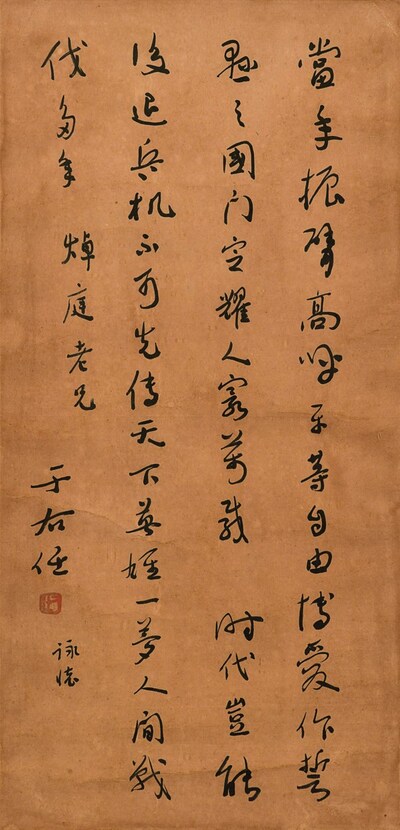 當年振臂高呼平等自由博愛作誓
懸之國門定耀人寰萬載 时代豈能
後退兵机不可先傳天下英雄一夢人間戰
伐多年 焯庭老兄
于右任
詠懷